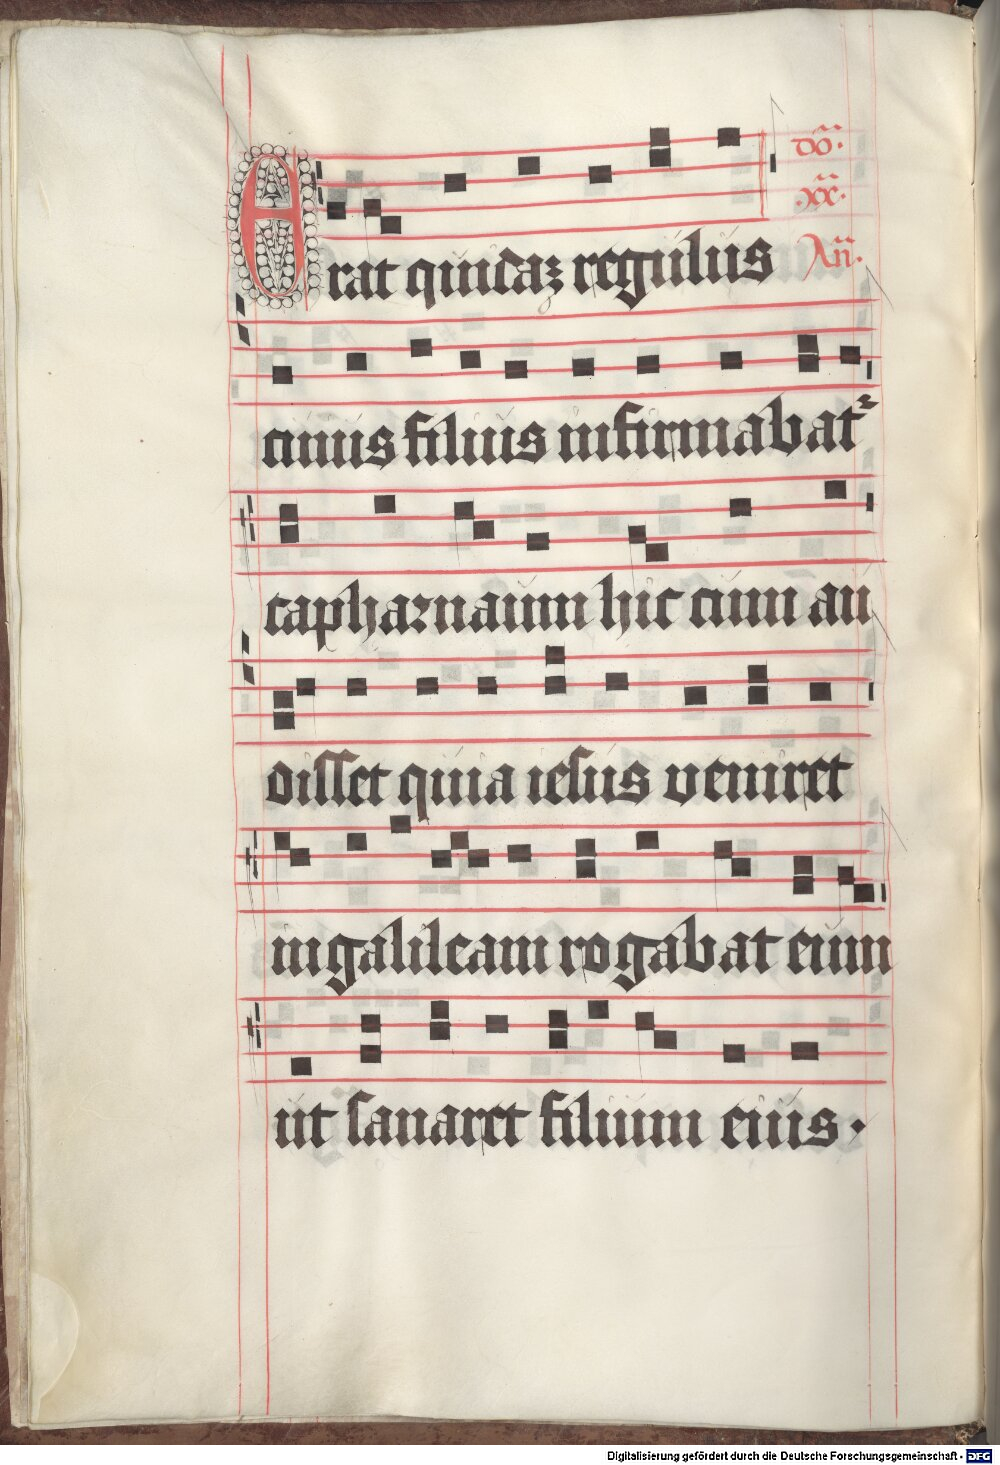 Erat quidaz regulus
dō.
.xx.
Añ.
cuius filius infirmabat᷑
capharnaum hic cum au
disset quia iesus veniret
in galileam rogabat eum
ut sanaret filium eius.
Digitalisierung gefördert durch die Deutsche Forschungsgemeinschaft - DFG